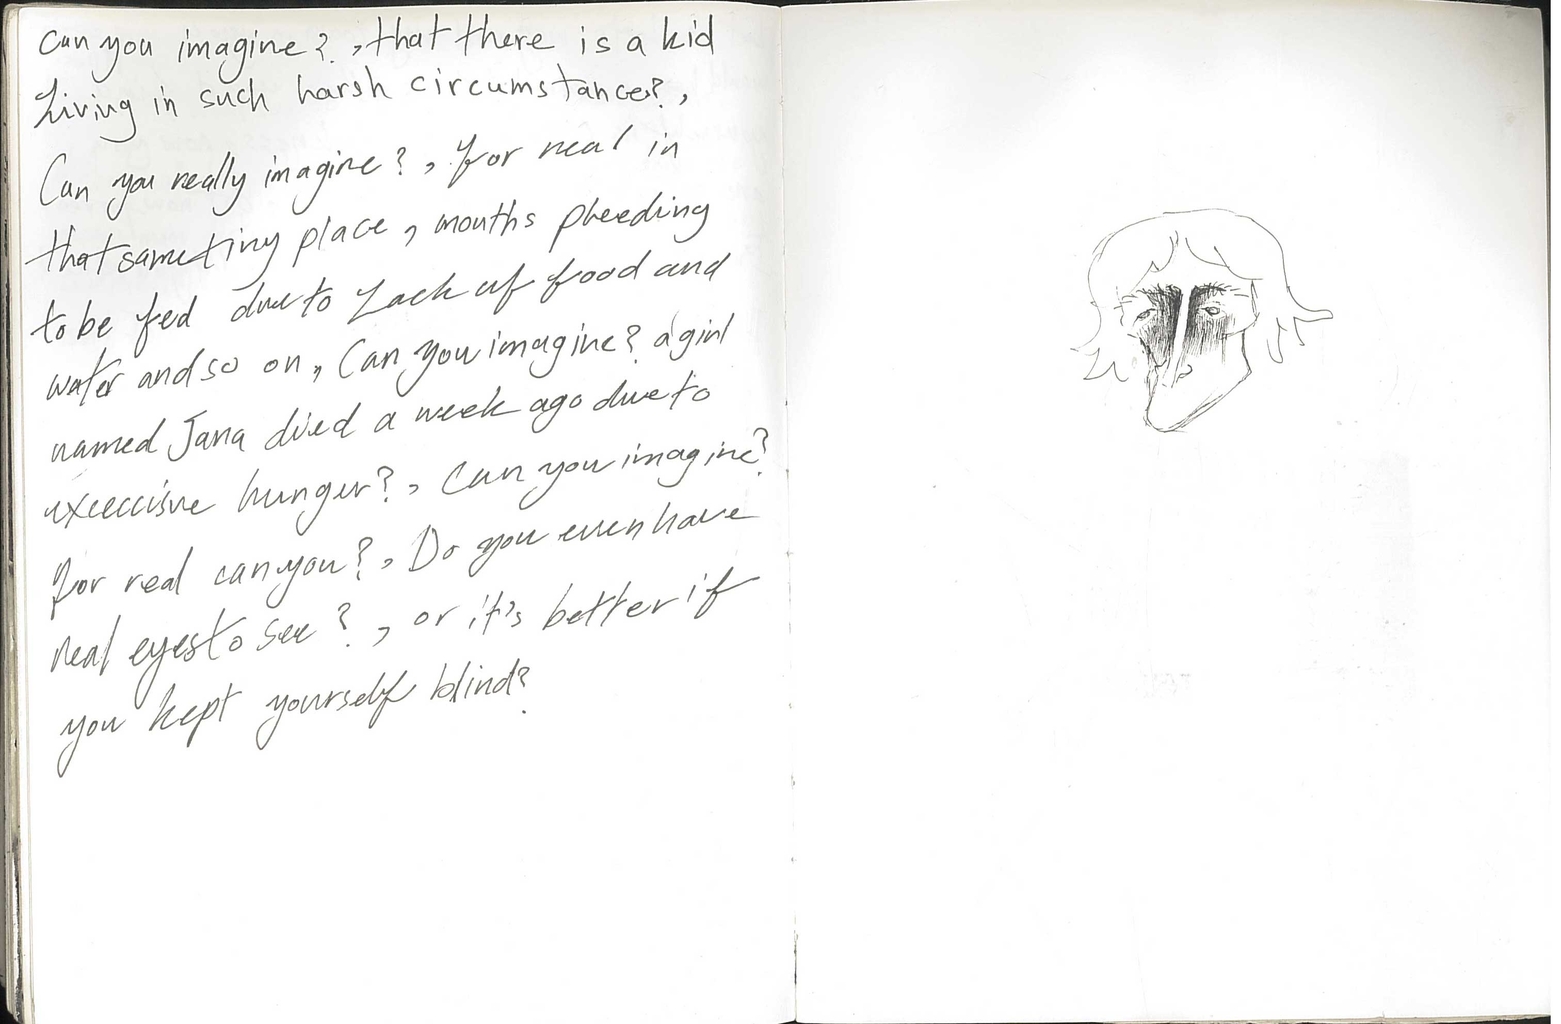 Can you imagine?, that there is a kid
Living in such harsh circumstance?,
Can you really imagine?, for real in
that same tiny place, mouths pleeding
to be fed due to Lack of food and
water and so on, Can you imagine? a girl
named Jana died a week ago due to
exceccisve hunger?, Can you imagine?
for real can you?, Do you even have
real eyes to see?, or it's better if
you kept yourself blind?